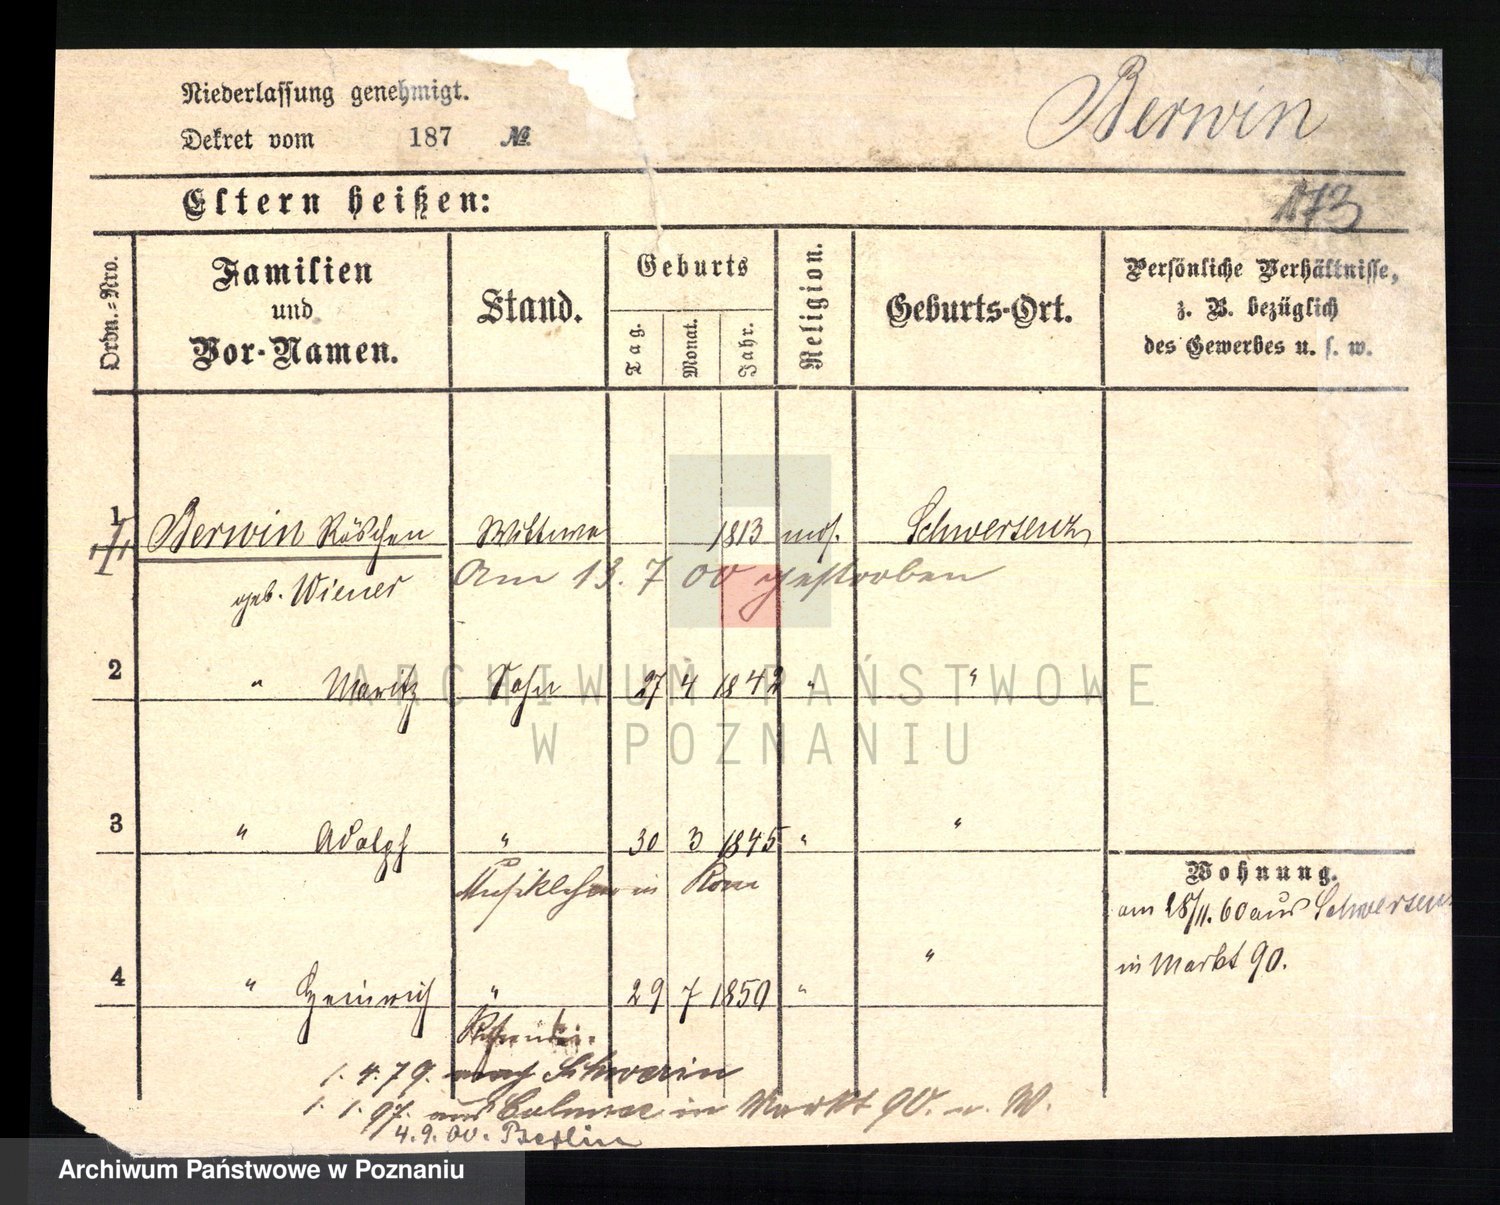 Niederlassung genehmigt.
Dekret vom 187 №
Berwin
173
Eltern heißen:
Ordn.-Nro.
Familien und Vor-Namen.
Stand.
Geburts
Tag.
Monat.
Jahr.
Religion.
Geburts-Ort.
Persönliche Verhältnisse, z. B. bezüglich des Gewerbes u. s. w.
1 Berwin Röschen Wittwe 1813 mos. Schwersenz
geb. Wiener
Am 13. 7 00 gestorben
2 " Moritz Sohn 27 4 1842 " "
3 " Adolph " 30 3 1845 " "
Musiklehrer in Rom
Wohnung.
am 28/11. 60 aus Schwersenz
in Markt 90.
4 " Heinrich " 29 7 1850 " "
1. 4. 79. nach Schwerin
1. 1. 97. aus in Markt 90. n. W.
4. 9. 00. Berlin
ARCHIWUM PAŃSTWOWE
W POZNANIU
Archiwum Państwowe w Poznaniu